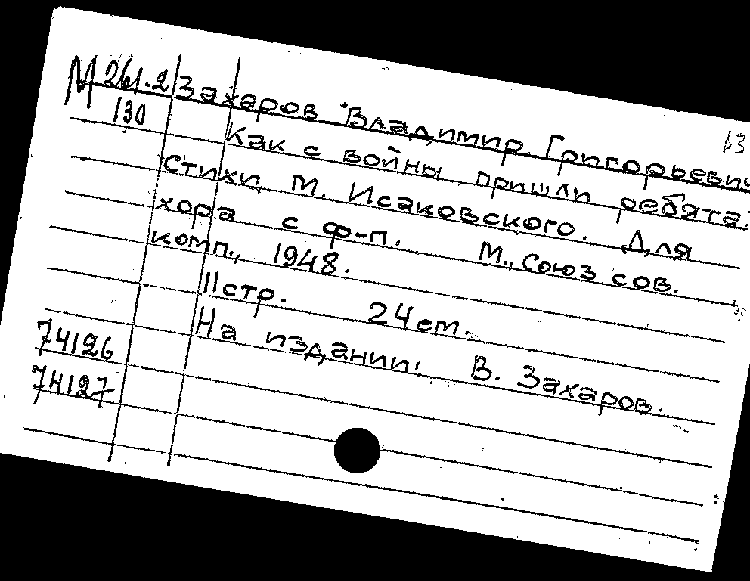 М 261.2 Захаров Владимир Григорьевич
130 13
Как с войны пришли ребята.
Стихи М. Исаковского. Для
хора с ф-п. М., Союз сов.
комп., 1948.
11 стр. 24 см.
На издании: В. Захаров.
74126
74127